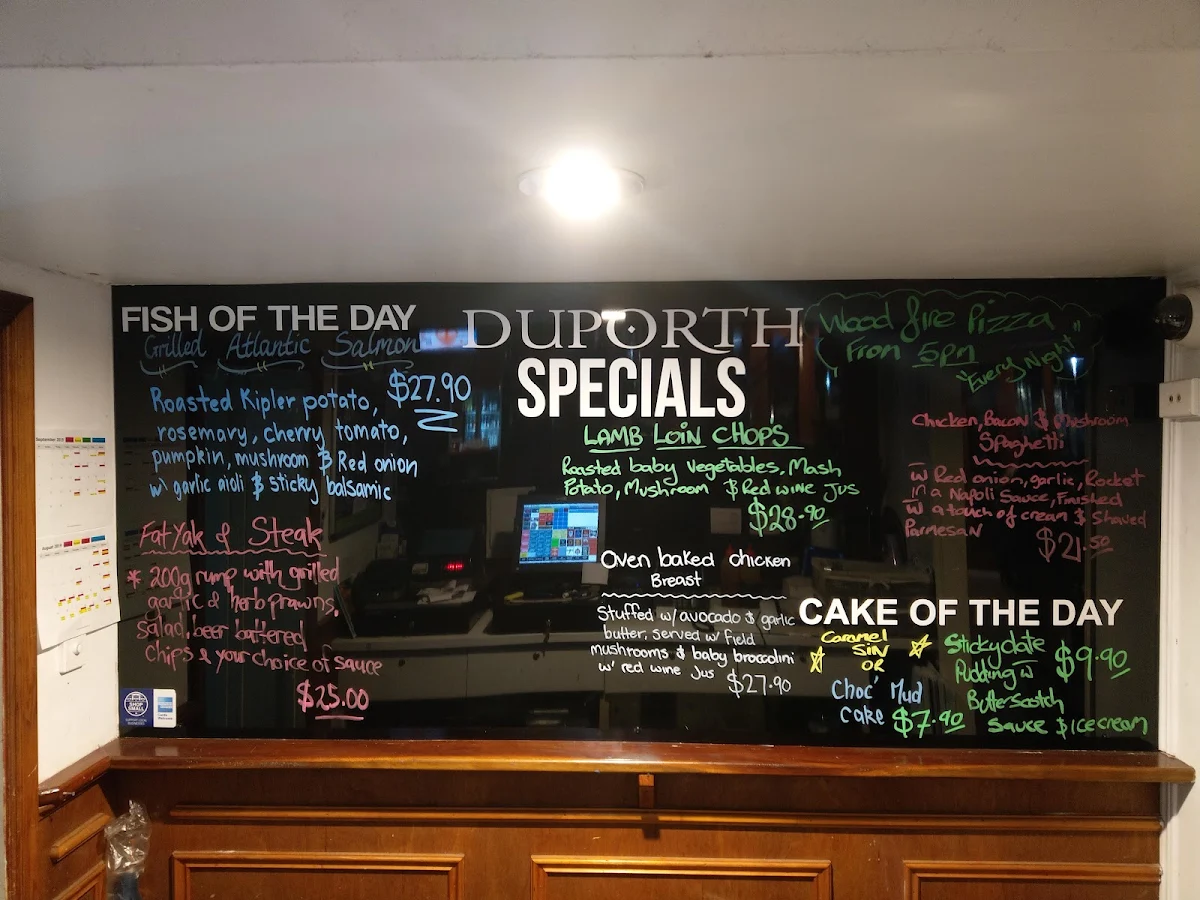 FISH OF THE DAY
Grilled Atlantic Salmon
$27.90
Roasted Kipler potato,
rosemary, cherry tomato,
pumpkin, mushroom & Red onion
w/ garlic aioli & sticky balsamic
Fat Yak & Steak
* 200g rump with grilled
garlic & herb prawns,
salad, beer battered
chips & your choice of sauce
$25.00
SHOP
SMALL
DUPORTH
SPECIALS
LAMB LOIN CHOPS
Roasted baby vegetables, Mash
Potato, Mushroom & Red wine jus
$28.90
Oven baked chicken
Breast
Stuffed w/ avocado & garlic
butter, served w/ field
mushrooms & baby broccolini
w/ red wine jus $27.90
Wood fire Pizza
From 5pm
"Every Night"
Chicken, Bacon & Mushroom
Spaghetti
w Red onion, garlic, Rocket
in a Napoli Sauce, Finished
w a touch of cream & Shaved
Parmesan
$21.50
CAKE OF THE DAY
Caramel
SIN
OR
Choc' Mud
Cake $7.90
Sticky date
Pudding w
Butterscotch
Sauce & Ice cream
$9.90